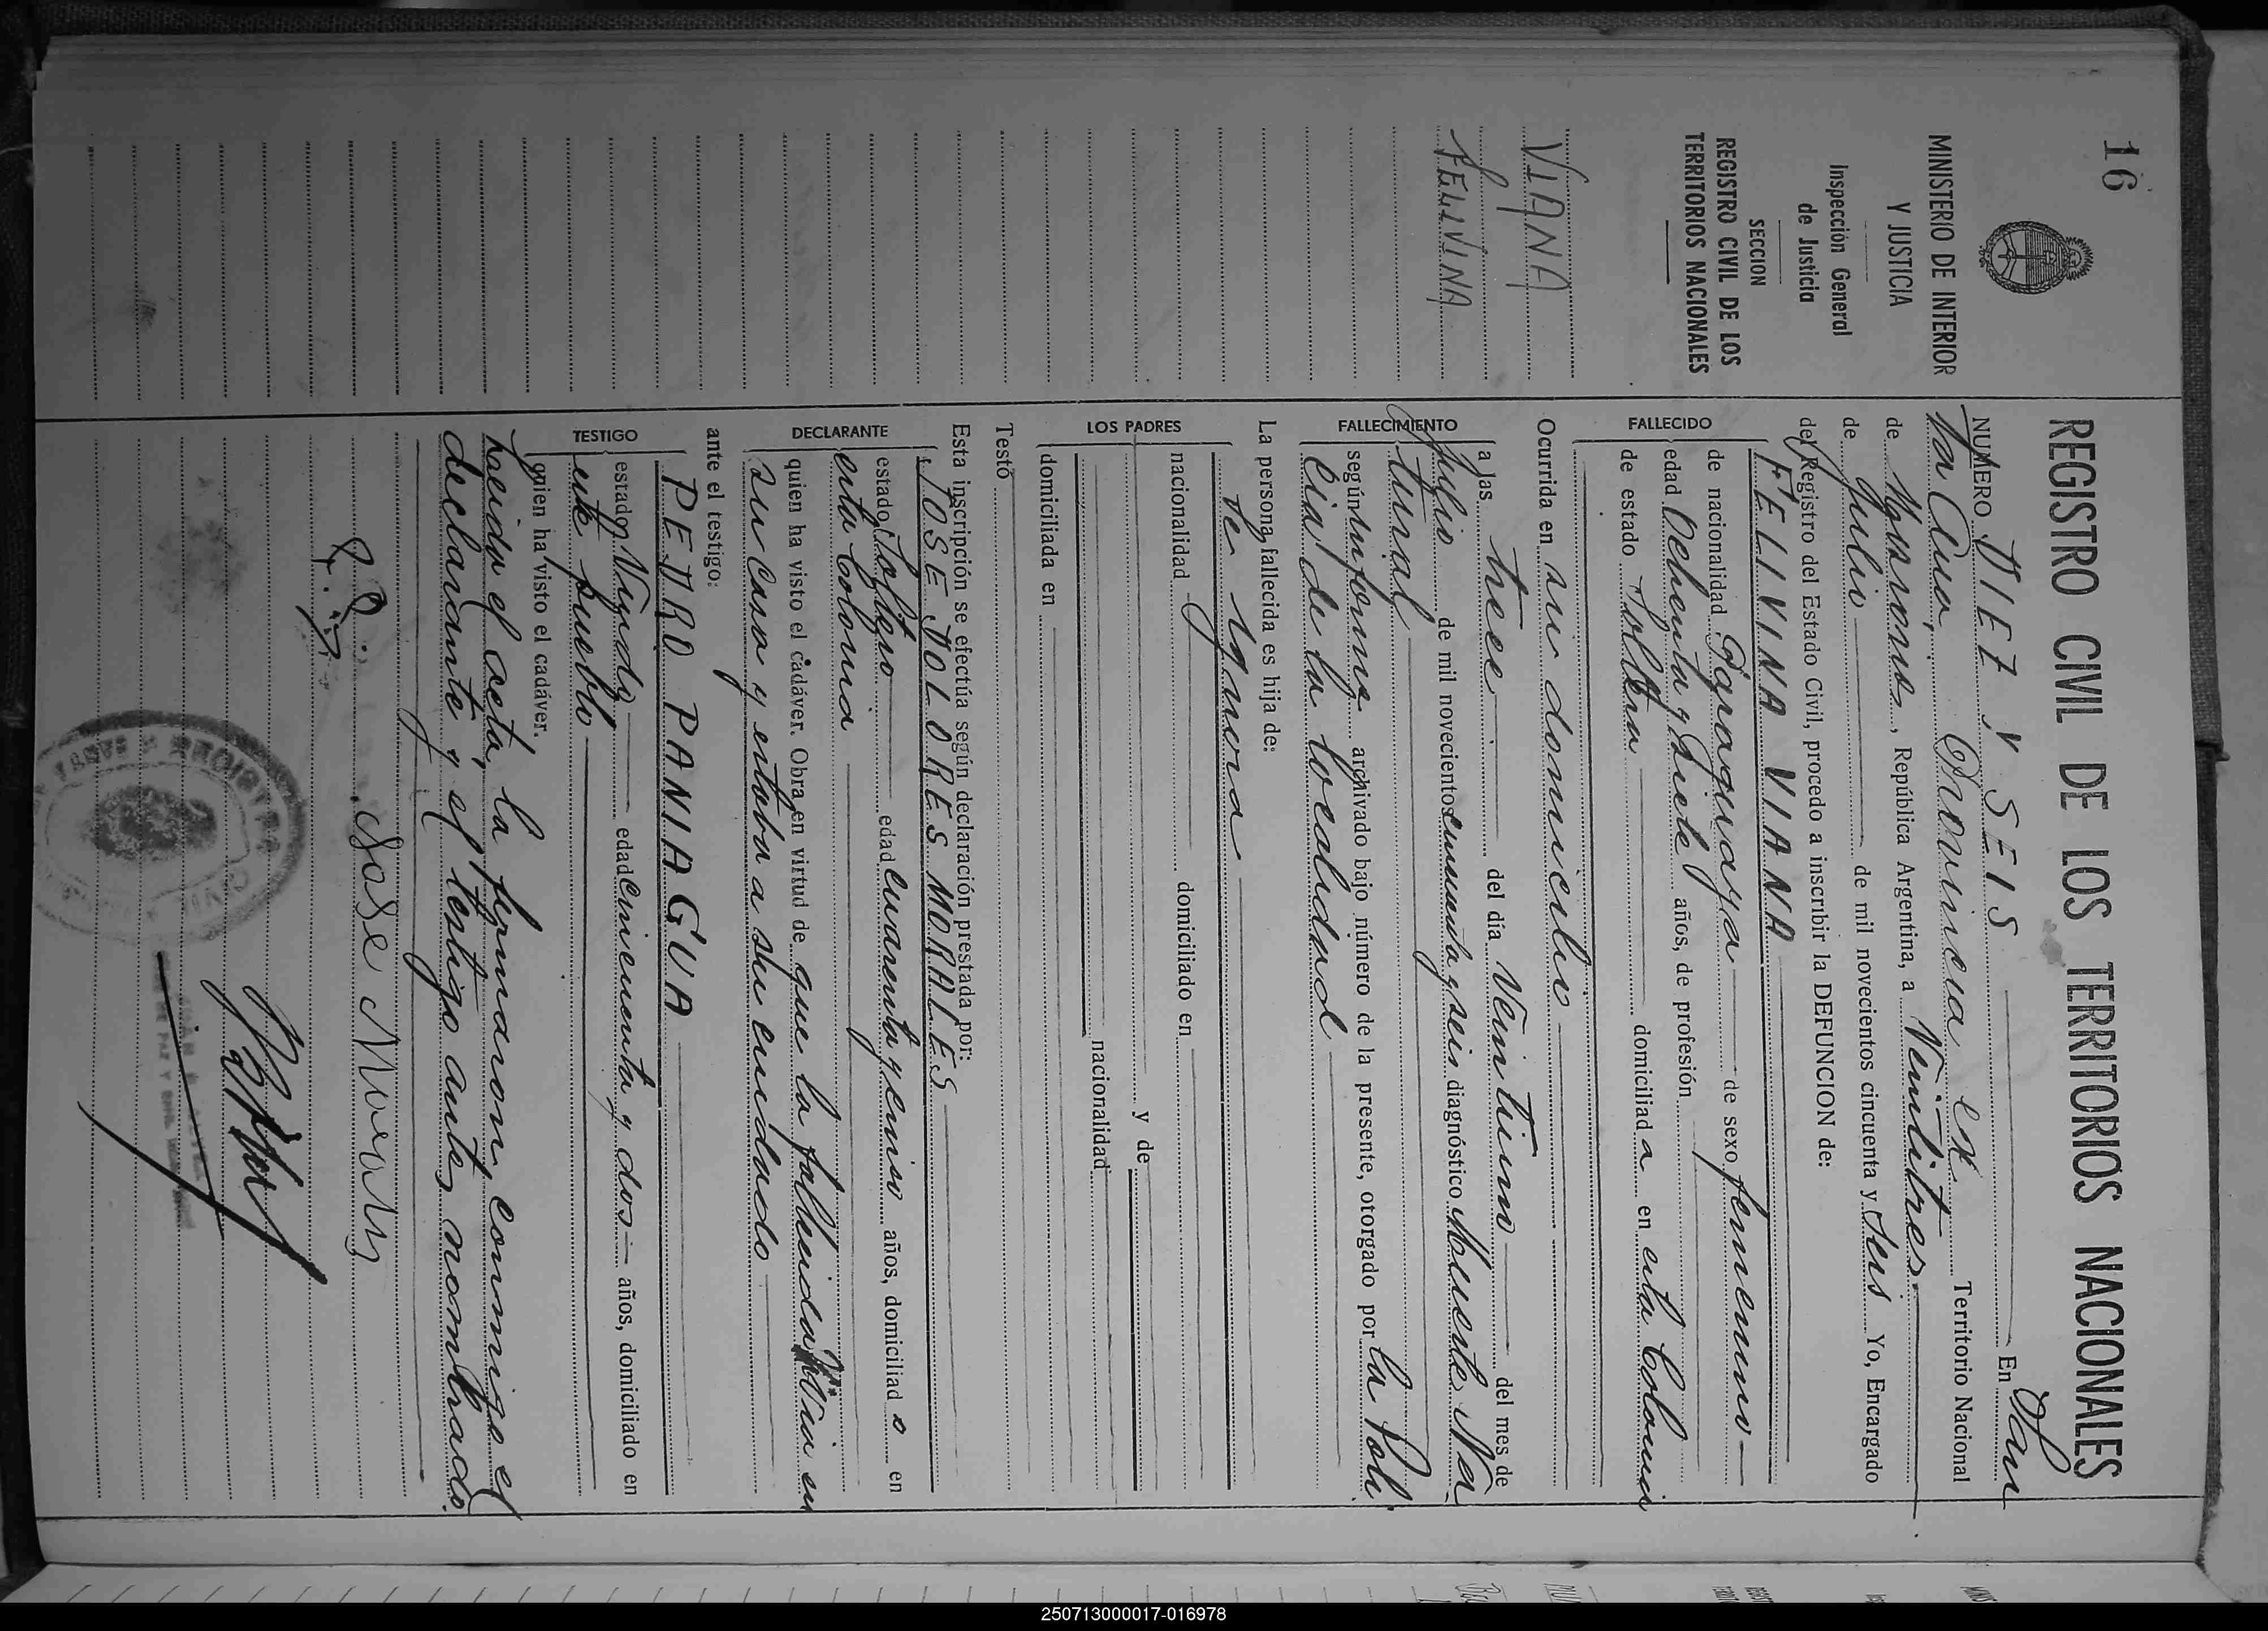 16
MINISTERIO DE INTERIOR
Y JUSTICIA
Inspección General
de Justicia
SECCION
REGISTRO CIVIL DE LOS
TERRITORIOS NACIONALES
VIANA
FELIVINA
REGISTRO CIVIL DE LOS TERRITORIOS NACIONALES
NUMERO DIEZ Y SEIS En
Provincia ex Territorio Nacional
de Misiones, República Argentina, a Veintitres
de Julio de mil novecientos cincuenta y Seis Yo, Encargado
del Registro del Estado Civil, procedo a inscribir la DEFUNCION de:
FALLECIDO
FELIVINA VIANA
de nacionalidad Paraguaya de sexo femenino
edad Ochenta y siete años, de profesión
de estado Soltera domiciliad a en esta Colonia
Ocurrida en su domicilio
FALLECIMIENTO
a las trece del día Veintiuno del mes de
Julio de mil novecientos cincuenta y seis diagnóstico Muerte Na
tural
según informe archivado bajo número de la presente, otorgado por la Poli
cia de la localidad
La persona fallecida es hija de:
LOS PADRES
Se ignora
nacionalidad domiciliado en
y de
nacionalidad
domiciliada en
Testó
Esta inscripción se efectúa según declaración prestada por:
DECLARANTE
JOSE DOLORES MORALES
estado Soltero edad cuarenta y cinco años, domiciliad o en
esta Colonia
quien ha visto el cadáver. Obra en virtud de que la fallecida vivia en
su casa y estaba a su cuidado
ante el testigo:
TESTIGO
PEDRO PANIAGUA
estado Viudo edad Cincuenta y dos años, domiciliado en
este pueblo
quien ha visto el cadáver.
Leida el acta, la firmaron, conmigo el
declarante y el testigo antes nombrado.
Jose Morales
250713000017-016978